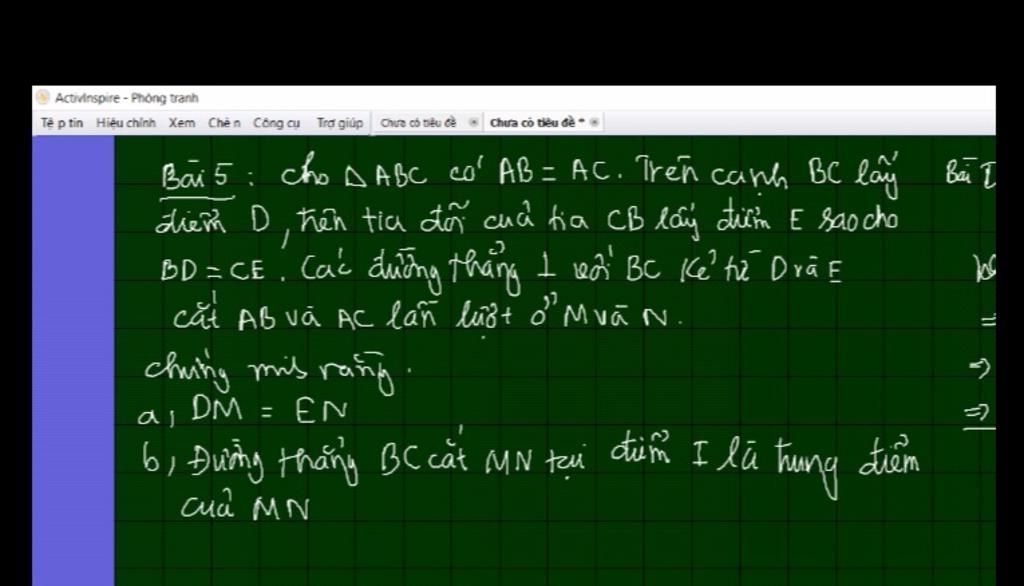 ActivInspire - Phòng tranh
Tệp tin Hiệu chỉnh Xem Chèn Công cụ Trợ giúp Chưa có tiêu đề Chưa có tiêu đề *
Bài 5 : cho △ ABC có AB = AC. Trên cạnh BC lấy
điểm D, trên tia đối của tia CB lấy điểm E sao cho
BD = CE. Các đường thẳng ⊥ với BC kẻ từ D và E
cắt AB và AC lần lượt ở M và N.
chứng mih rằng.
a, DM = EN
b, Đường thẳng BC cắt MN tại điểm I là trung điểm
của MN
Bài
=
=>
=>